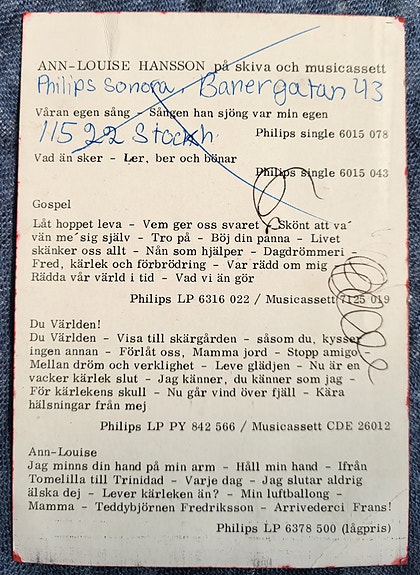 ANN-LOUISE HANSSON på skiva och musicassett
Philips Sonora Banergatan 43
Våran egen sång - Sången han sjöng var min egen
115 22 Stockh.
Philips single 6015 078
Vad än sker - Ler, ber och bönar
Philips single 6015 043
Gospel
Låt hoppet leva - Vem ger oss svaret - Skönt att va´
vän me´sig själv - Tro på - Böj din panna - Livet
skänker oss allt - Nån som hjälper - Dagdrömmeri -
Fred, kärlek och förbrödring - Var rädd om mig -
Rädda vår värld i tid - Vad vi än gör
Philips LP 6316 022 / Musicassett 7125 019
Du Världen!
Du Världen - Visa till skärgården - såsom du, kysser
ingen annan - Förlåt oss, Mamma jord - Stopp amigo -
Mellan dröm och verklighet - Leve glädjen - Nu är en
vacker kärlek slut - Jag känner, du känner som jag -
För kärlekens skull - Nu går vind över fjäll - Kära
hälsningar från mej
Philips LP PY 842 566 / Musicassett CDE 26012
Ann-Louise
Jag minns din hand på min arm - Håll min hand - Ifrån
Tomelilla till Trinidad - Varje dag - Jag slutar aldrig
älska dej - Lever kärleken än? - Min luftballong -
Mamma - Teddybjörnen Fredriksson - Arrivederci Frans!
Philips LP 6378 500 (lågpris)